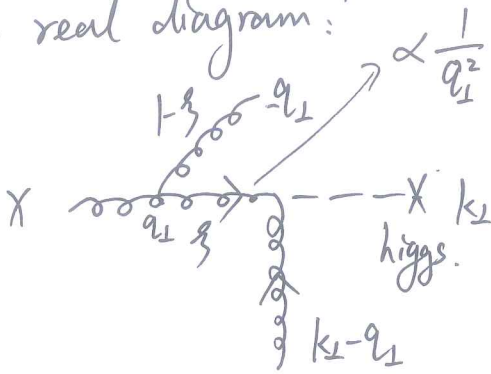 real diagram:
∝ 1/q⊥²
1-ξ -q⊥
X q⊥ ξ X k⊥
higgs.
k⊥-q⊥